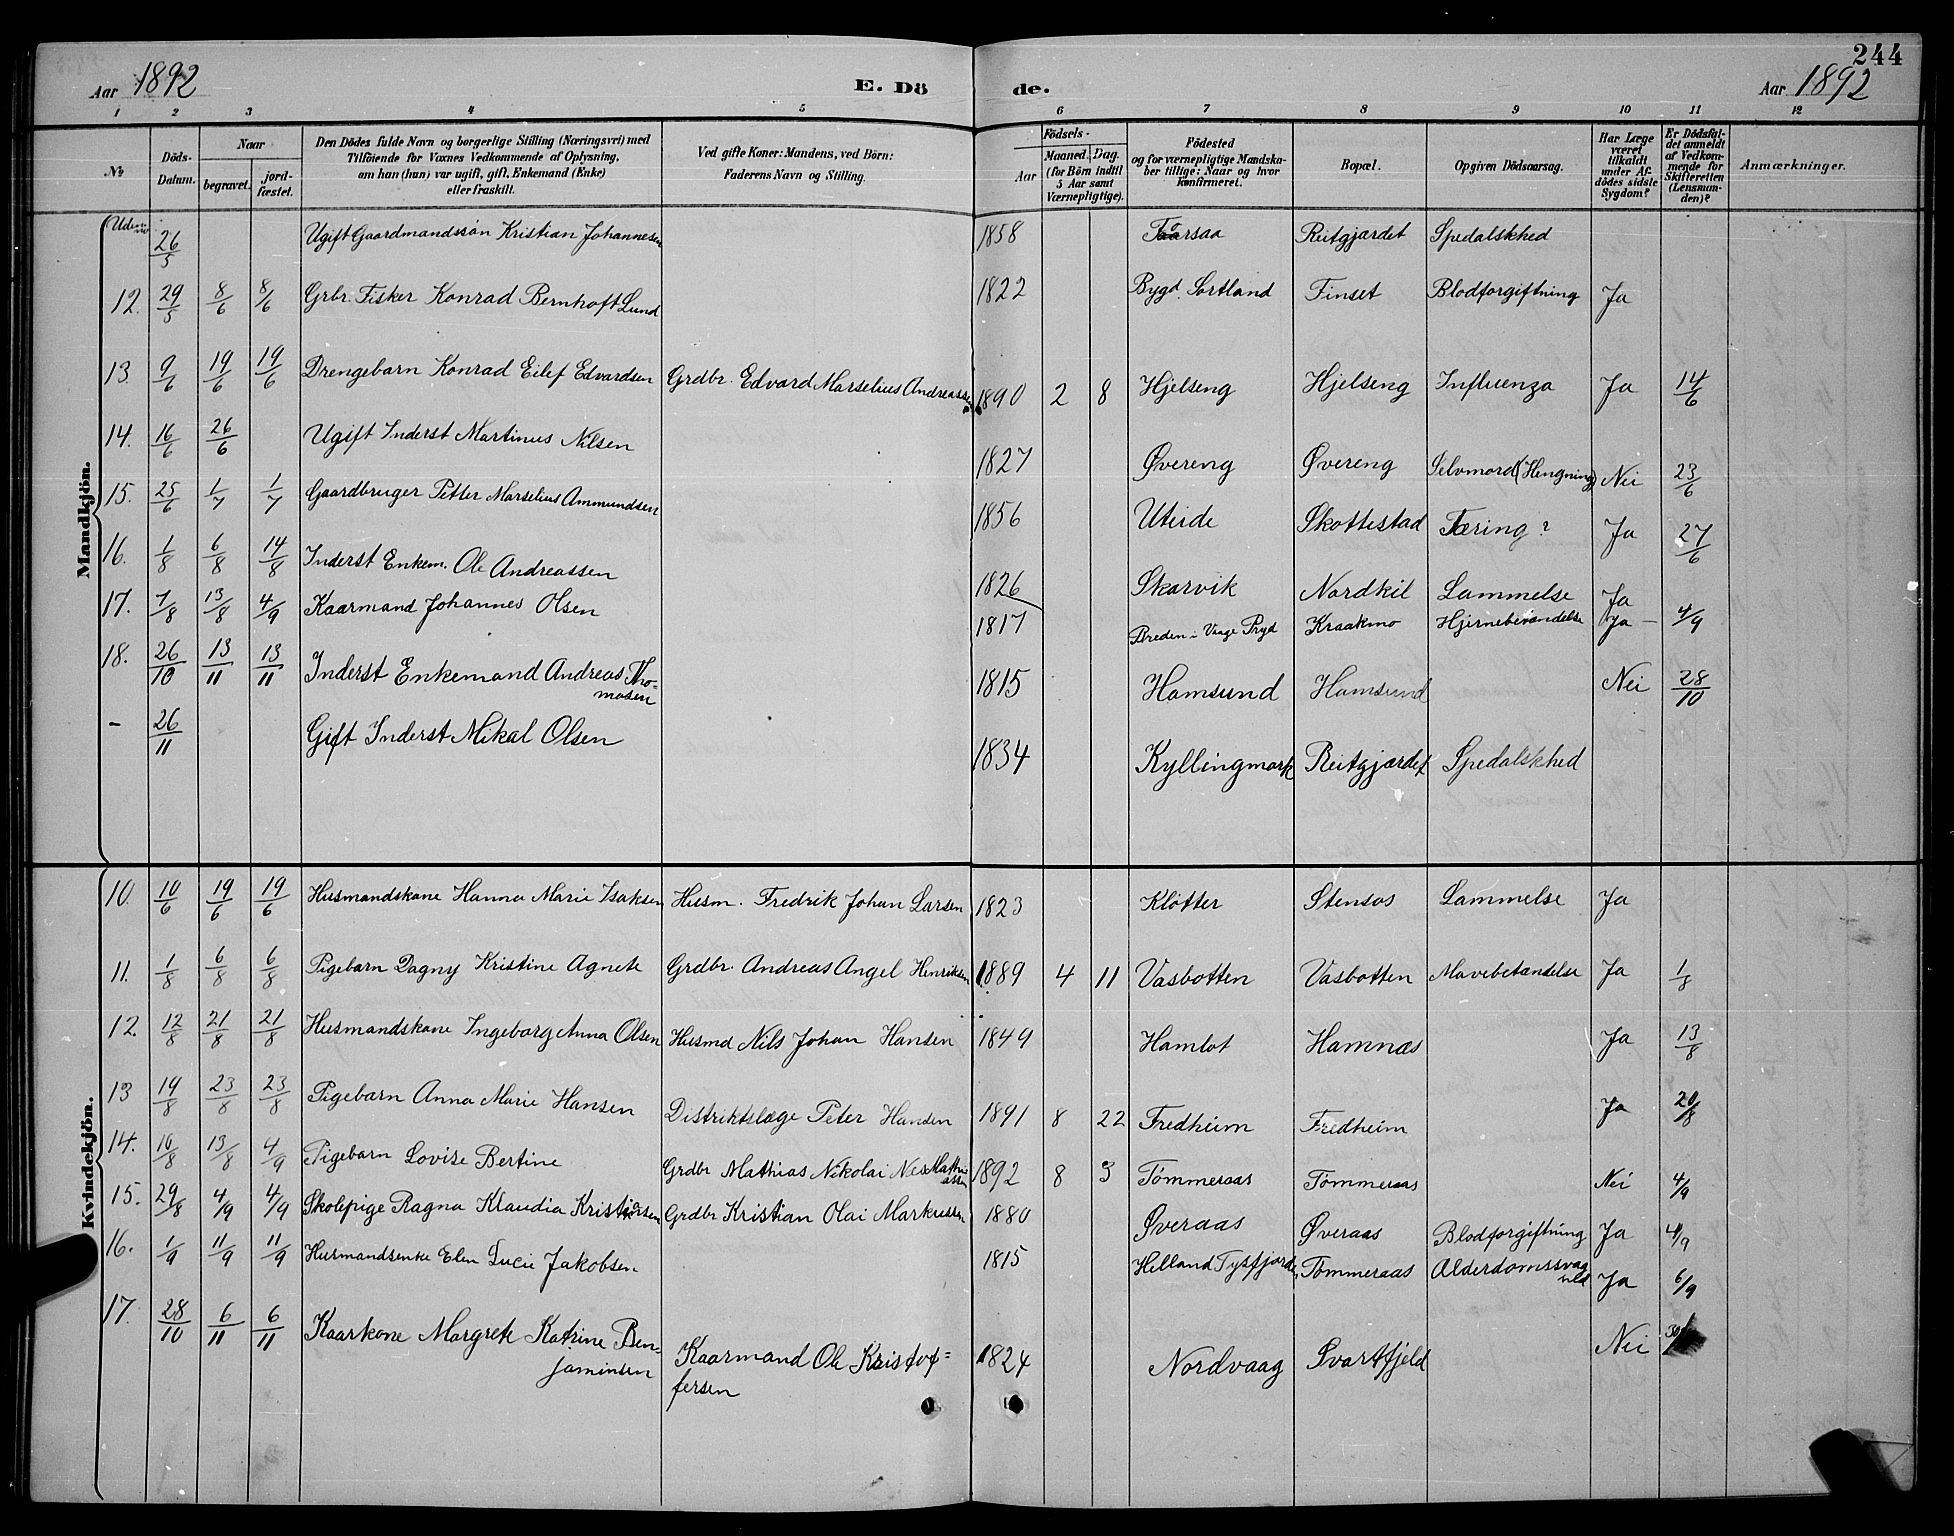 244
Aar 1892 E. Dö de. Aar 1892
1 2 3 4 5 6 7 8 9 10 11 12
No Döds-Datum. Naar begravet. jord-fæstet. Den Dödes fulde Navn og borgerlige Stilling (Næringsvei) med Tilföiende for Voxnes Vedkommende af Oplysning, om han (hun) var ugift, gift, Enkemand (Enke) eller fraskilt. Ved gifte Koner: Mandens, ved Börn: Faderens Navn og Stilling. Födsels- Aar Maaned. Dag. (for Börn indtil 5 Aar samt Værnepligtige). Födested og for værnepligtige Mandskaber tillige: Naar og hvor konfirmeret. Bopæl. Opgiven Dödsaarsag. Har Læge været tilkaldt under Afdödes sidste Sygdom? Er Dödsfaldet anmeldt af Vedkommende for Skifteretten (Lensmanden)? Anmærkninger.
Mandkjön.
26/5 Ugift Gaardmandssön Kristian Johannesen 1858 Reitgjærdet Spedalskhed
12. 29/5 8/6 8/6 Grbr. Fisker Konrad Bernhoft Lund 1822 Bygd. Sortland Finset Blodforgiftning Ja
13. 9/6 19/6 19/6 Drengebarn Konrad Eilef Edvardsen Grdbr. Edvard Marselius Andreassen 1890 2 8 Hjelseng Hjelseng Influenza Ja 14/6
14. 16/6 26/6 Ugift Inderst Martinus Nilsen 1827 Øvereng Øvereng Selvmord (Hengning) Nei 23/6
15. 25/6 1/7 1/7 Gaardbruger Petter Marselius Ammundsen 1856 Uteide Skottestad Tæring? Ja 27/6
16. 1/8 6/8 14/8 Inderst Enkem. Ole Andreassen 1826 Skarvik Nordkil Lammelse Ja
17. 7/8 13/8 4/9 Kaarmand Johannes Olsen 1817 Kraakmo Ja - 4/9
18. 26/10 13/11 13/11 Inderst Enkemand Andreas Tho=
masen 1815 Hamsund Hamsund Nei 28/10
- 26/11 Gift Inderst Mikal Olsen 1834 Kyllingmark Reitgjærdet Spedalskhed
Kvindekjön.
10. 10/6 19/6 19/6 Husmandskone Hanna Marie Isaksen Husm. Fredrik Johan Larsen 1823 Kløtter Stensos Lammelse Ja
11. 1/8 6/8 6/8 Pigebarn Dagny Kristine Agnete Grdbr. Andreas Angel Henriksen 1889 4 11 Vasbotten Vasbotten Mavebetændelse Ja 1/8
12. 12/8 21/8 21/8 Husmandskone Ingeborg Anna Olsen Husmd Nils Johan Hansen 1849 Hamlot Hamnæs Ja 13/8
13 19/8 23/8 23/8 Pigebarn Anna Marie Hansen Distriktslæge Peter Hansen 1891 8 22 Fredheim Fredheim Ja 20/8
14. 10/8 13/8 4/9 Pigebarn Lovise Bertine Grdbr Mathias Nikolai 1892 8 3 Tömmeraas Tömmeraas Nei 4/9
15. 29/8 4/9 4/9 Skolepige Ragna Klaudia Kristiansen Grdbr Kristian Olai Markussen 1880 Øveraas Øveraas Blodforgiftning Ja 4/9
16. 1/9 11/9 11/9 Husmandsenke Elen Lucie Jakobsen 1815 Helland Tysfjorden Tömmeraas Alderdomssvag
hed Ja 6/9
17. 28/10 6/11 6/11 Kaarkone Margrete Katrine Ben=
jaminsen Kaarmand Ole Kristof=
fersen 1824 Nordvaag Svartfjeld Nei